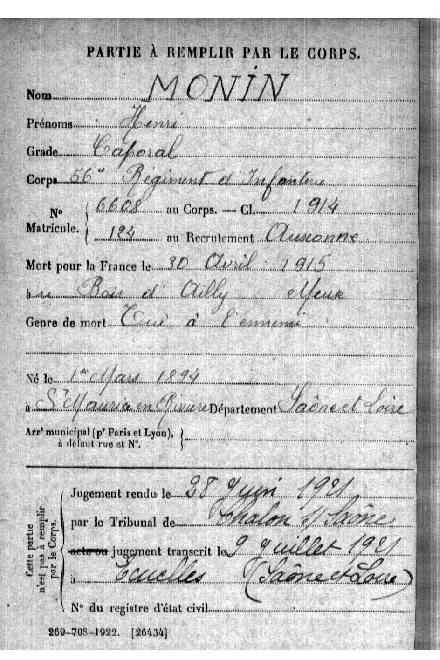 PARTIE À REMPLIR PAR LE CORPS.
Nom MONIN
Prénoms Henri
Grade Caporal
Corps 56e Régiment d'Infanterie
No Matricule. { 6608 au Corps. — Cl. 1914
124 au Recrutement Auxonne
Mort pour la France le 30 Avril 1915
à Bois d'Ailly Meuse
Genre de mort Tué à l'ennemi
Né le 1er Mars 1894
à St Maurice en Rivière Département Saône et Loire
Arrt municipal (pr Paris et Lyon), }
à défaut rue et No.
Cette partie n'est pas à remplir par le Corps.
Jugement rendu le 28 Juin 1921
par le Tribunal de Chalon s/ Saône
acte ou jugement transcrit le 9 Juillet 1921
à Ecuelles (Saône et Loire)
No du registre d'état civil
269-708-1922. [26434]